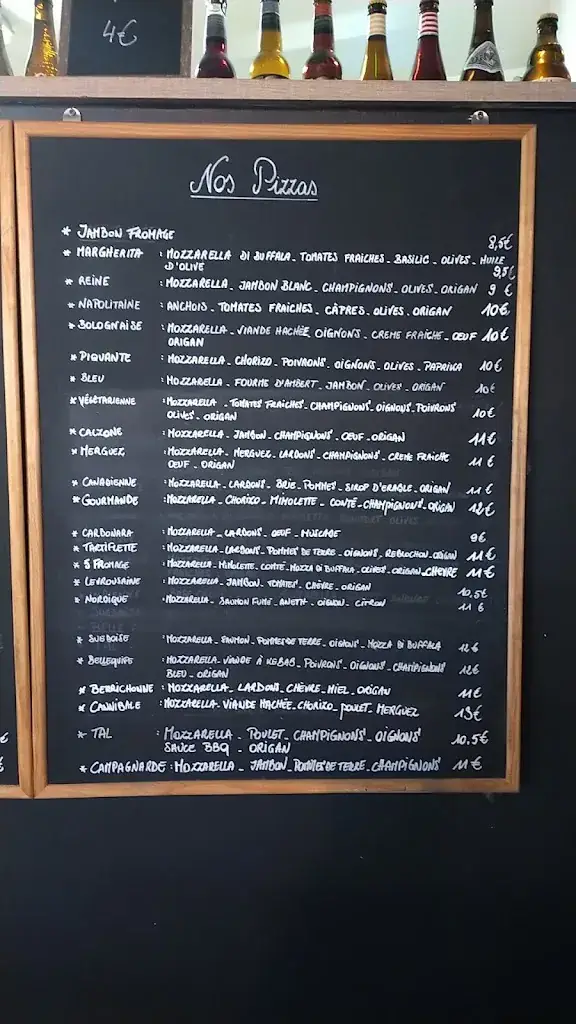 4€
Nos Pizzas
* JAMBON FROMAGE 8,5€
* MARGHERITA : MOZZARELLA DI BUFFALA _ TOMATES FRAICHES _ BASILIC _ OLIVES _ HUILE
D'OLIVE 9,5€
* REINE : MOZZARELLA _ JAMBON BLANC _ CHAMPIGNONS _ OLIVES _ ORIGAN 9 €
* NAPOLITAINE : ANCHOIS _ TOMATES FRAICHES _ CÂPRES _ OLIVES _ ORIGAN 10€
* BOLOGNAISE : MOZZARELLA _ VIANDE HACHÉE OIGNONS _ CREME FRAÎCHE _ OEUF 10€
ORIGAN
* PIQUANTE : MOZZARELLA _ CHORIZO _ POIVRONS _ OIGNONS _ OLIVES _ PAPRIKA 10€
* BLEU : MOZZARELLA _ FOURME D'AMBERT _ JAMBON _ OLIVES _ ORIGAN 10€
* VÉGÉTARIENNE : MOZZARELLA _ TOMATES FRAICHES _ CHAMPIGNONS _ OIGNONS _ POIVRONS
OLIVES _ ORIGAN 10€
* CALZONE : MOZZARELLA _ JAMBON _ CHAMPIGNONS _ OEUF _ ORIGAN 11€
* MERGUEZ : MOZZARELLA _ MERGUEZ _ LARDONS _ CHAMPIGNONS _ CREME FRAICHE
OEUF _ ORIGAN 11 €
* CANADIENNE : MOZZARELLA _ LARDONS _ BRIE _ POMMES _ SIROP D'ERABLE _ ORIGAN 11 €
* GOURMANDE : MOZZARELLA _ CHORIZO _ MIMOLETTE _ COMTÉ _ CHAMPIGNONS _ ORIGAN 12€
* CARBONARA : MOZZARELLA _ LARDONS _ OEUF _ MUSCADE 9€
* TARTIFLETTE : MOZZARELLA _ LARDONS _ POMMES DE TERRE _ OIGNONS _ REBLOCHON _ ORIGAN 11€
* 5 FROMAGE : MOZZARELLA _ MIMOLETTE _ COMTÉ _ MOZZA DI BUFFALA _ OLIVES _ ORIGAN _ CHEVRE 11€
* LEVROUSAINE : MOZZARELLA _ JAMBON _ TOMATES _ CHÈVRE _ ORIGAN 10,5€
* NORDIQUE : MOZZARELLA _ SAUMON FUMÉ _ ANETH _ OIGNON _ CITRON 11 €
* SUEDOISE : MOZZARELLA _ SAUMON _ POMMES DE TERRE _ OIGNONS _ MOZZA DI BUFFALA 12€
* BELLEQUIPE : MOZZARELLA _ VIANDE À KEBAB _ POIVRONS _ OIGNONS _ CHAMPIGNONS
BLEU _ ORIGAN 12€
* BERRICHONNE : MOZZARELLA _ LARDONS _ CHÈVRE _ MIEL _ ORIGAN 11€
* CANNIBALE : MOZZARELLA _ VIANDE HACHÉE _ CHORIZO _ POULET _ MERGUEZ 13€
* TAL : MOZZARELLA _ POULET _ CHAMPIGNONS _ OIGNONS 10,5€
SAUCE BBQ _ ORIGAN
* CAMPAGNARDE : MOZZARELLA _ JAMBON _ POMMES DE TERRE _ CHAMPIGNONS 11€